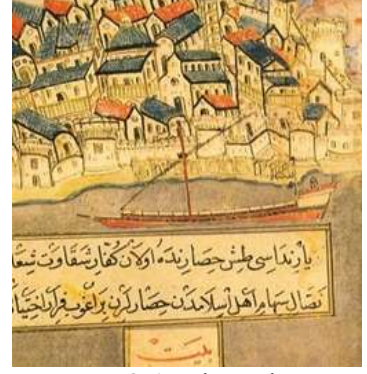 یازنداسی طش حصارنده اولان کفار شقاوت شعا
نصال سهام اهل اسلامدن حصارلرن براغوب فرار اختیا
بيت